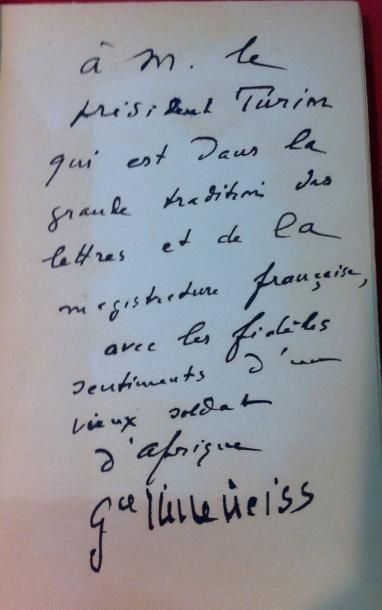 à M. le
président Turin
qui est dans la
grande tradition des
lettres et de la
magistrature française,
avec les fidèles
sentiments d'un
vieux soldat
d'Afrique
Gal